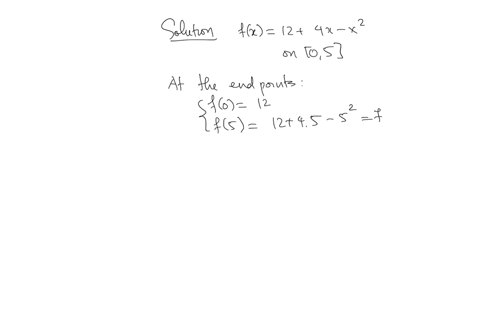 Solution f(x) = 12 + 4x - x²
on [0,5]
At the end points:
{ f(0) = 12
{ f(5) = 12 + 4.5 - 5² = 7